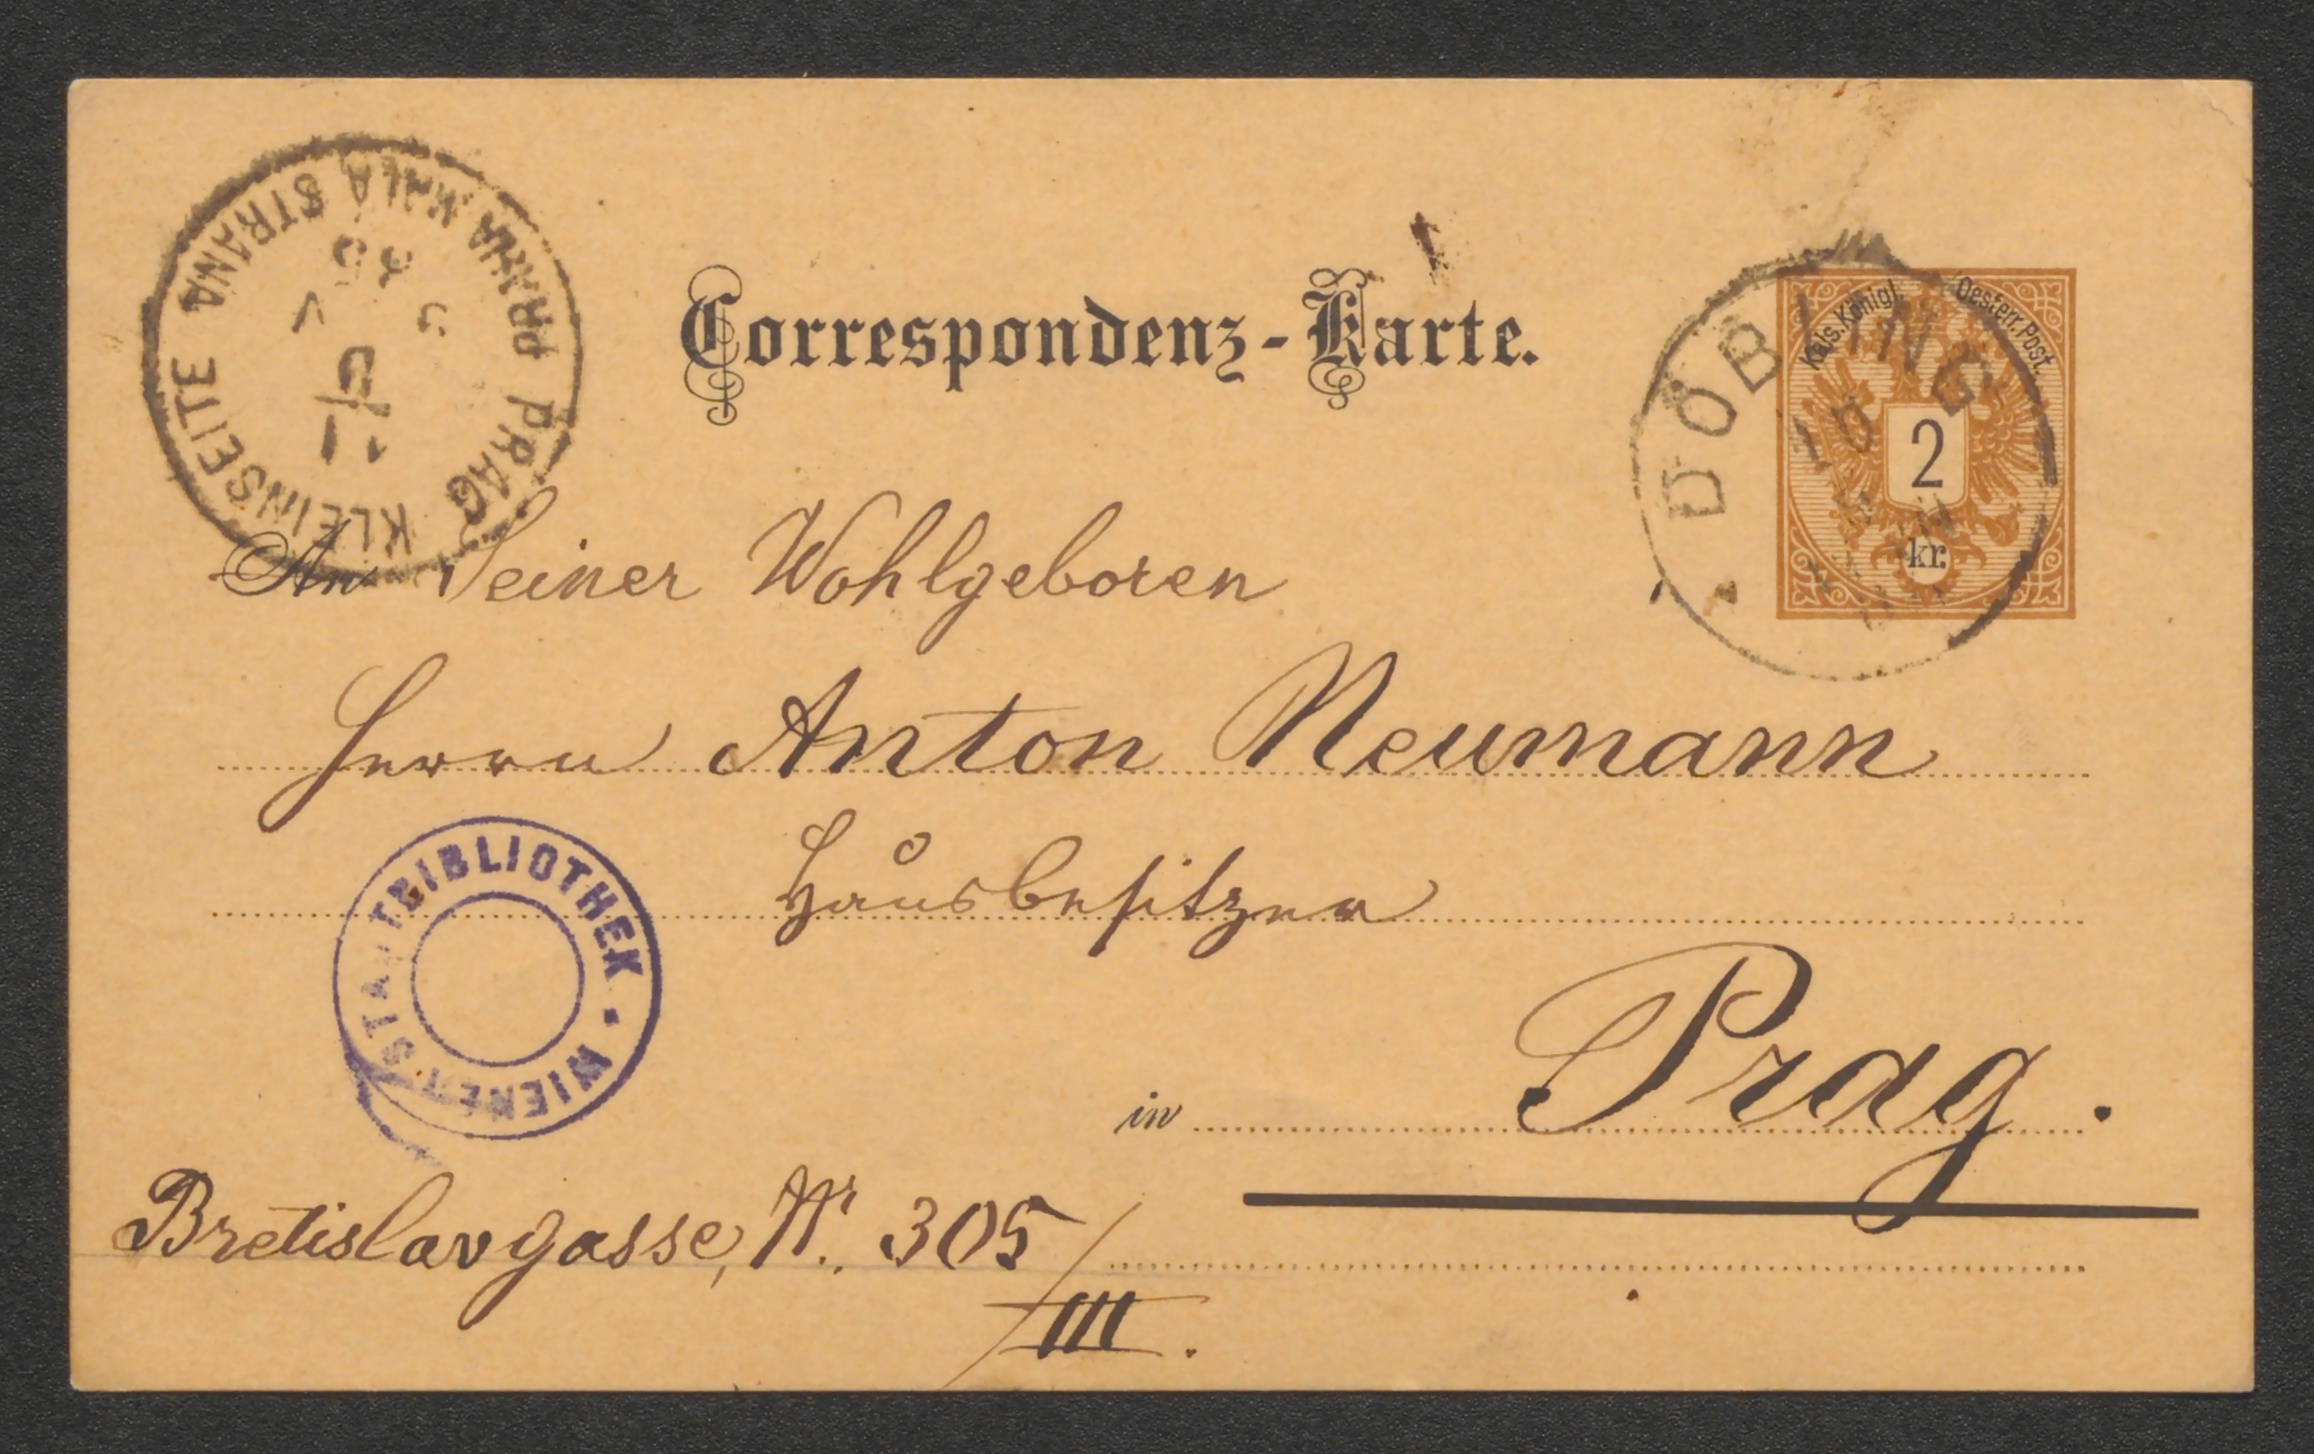 KLEINSEITE PRAG
PRAHA MALÁ STRANA
Correspondenz-Karte.
DÖBLING
Kais. Königl. Oesterr. Post.
2
kr.
An Seiner Wohlgeboren
Herrn Anton Neumann
Hausbesitzer
WIENER STADTBIBLIOTHEK
in Prag.
Bretislavgasse, Nr. 305/III.